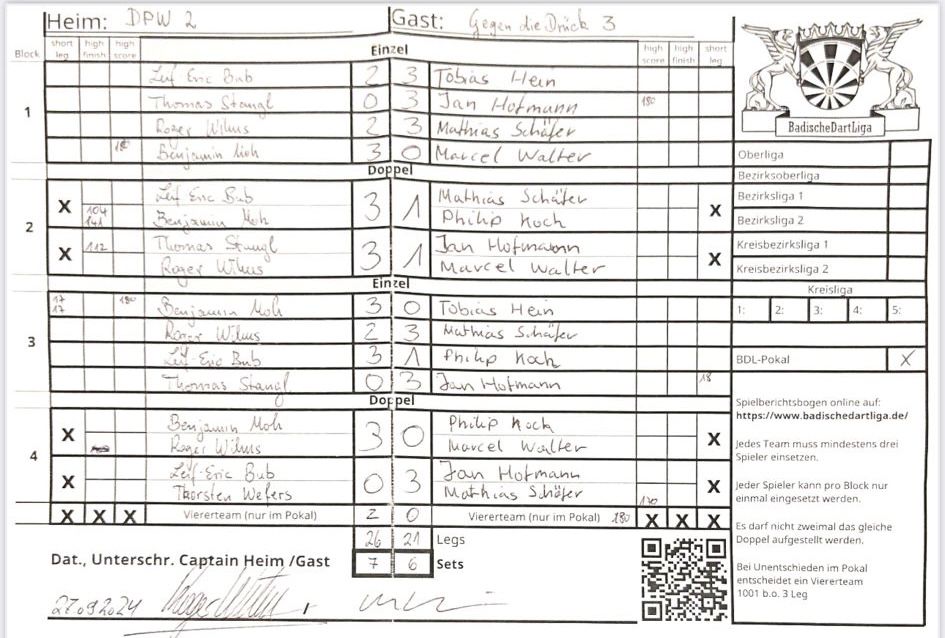 Heim: DPW 2 Gast: Gegen die Drück 3
Block short leg high finish high score Einzel high score high finish short leg
1
Leif Eric Bub 2 3 Tobias Hein
Thomas Stangl 0 3 Jan Hofmann 180
Roger Wilms 2 3 Mathias Schäfer
180 Benjamin Moh 3 0 Marcel Walter
Doppel
2
X 104 141 Leif Eric Bub 3 1 Mathias Schäfer X
Benjamin Moh Philip Koch
X 112 Thomas Stangl 3 1 Jan Hofmann X
Roger Wilms Marcel Walter
Einzel
3
17 17 180 Benjamin Moh 3 0 Tobias Hein
Roger Wilms 2 3 Mathias Schäfer
Leif-Eric Bub 3 1 Philip Koch
Thomas Stangl 0 3 Jan Hofmann 18
Doppel
4
X Benjamin Moh 3 0 Philip Koch X
Roger Wilms Marcel Walter
X Leif-Eric Bub 0 3 Jan Hofmann X
Thorsten Wefers Mathias Schäfer
X X X Viererteam (nur im Pokal) 2 0 Viererteam (nur im Pokal) 180 X X X
26 21 Legs
Dat., Unterschr. Captain Heim /Gast 7 6 Sets
27.09.2024
BadischeDartLiga
Oberliga
Bezirksoberliga
Bezirksliga 1
Bezirksliga 2
Kreisbezirksliga 1
Kreisbezirksliga 2
Kreisliga
1: 2: 3: 4: 5:
BDL-Pokal X
Spielberichtsbogen online auf:
https://www.badischedartliga.de/
Jedes Team muss mindestens drei
Spieler einsetzen.
Jeder Spieler kann pro Block nur
einmal eingesetzt werden.
Es darf nicht zweimal das gleiche
Doppel aufgestellt werden.
Bei Unentschieden im Pokal
entscheidet ein Viererteam
1001 b.o. 3 Leg